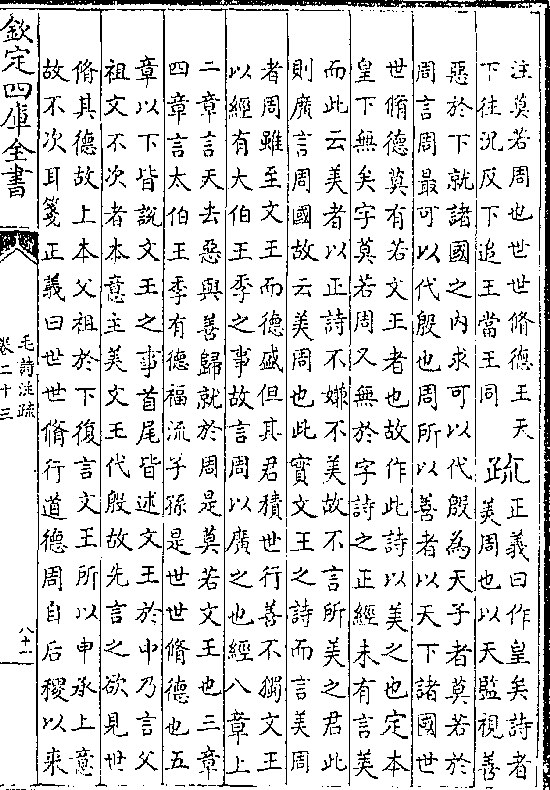 注莫若周也世世脩德王天
下往況反下追王當王同
疏
正義曰作皇矣詩者
美周也以天監視善
惡於下就諸國之内求可以代殷為天子者莫若於
周言周最可以代殷也周所以善者以天下諸國世
世脩德莫有若文王者也故作此詩以美之也定本
皇下無矣字莫若周又無於字詩之正經未有言美
而此云美者以正詩不嫌不美故不言所美之君此
則廣言周國故云美周也此實文王之詩而言美周
者周雖至文王而德盛但其君積世行善不獨文王
以經有大伯王季之事故言周以廣之也經八章上
二章言天去惡與善歸就於周是莫若文王也三章
四章言太伯王季有德福流子孫是世世脩德也五
章以下皆說文王之事首尾皆述文王於中乃言父
祖文不次者本意主美文王代殷故先言之欲見世
脩其德故上本父祖於下復言文王所以申承上意
故不次耳箋正義曰世世脩行道德周自后稷以来
欽定四庫全書
毛詩注疏
卷二十三
八十一